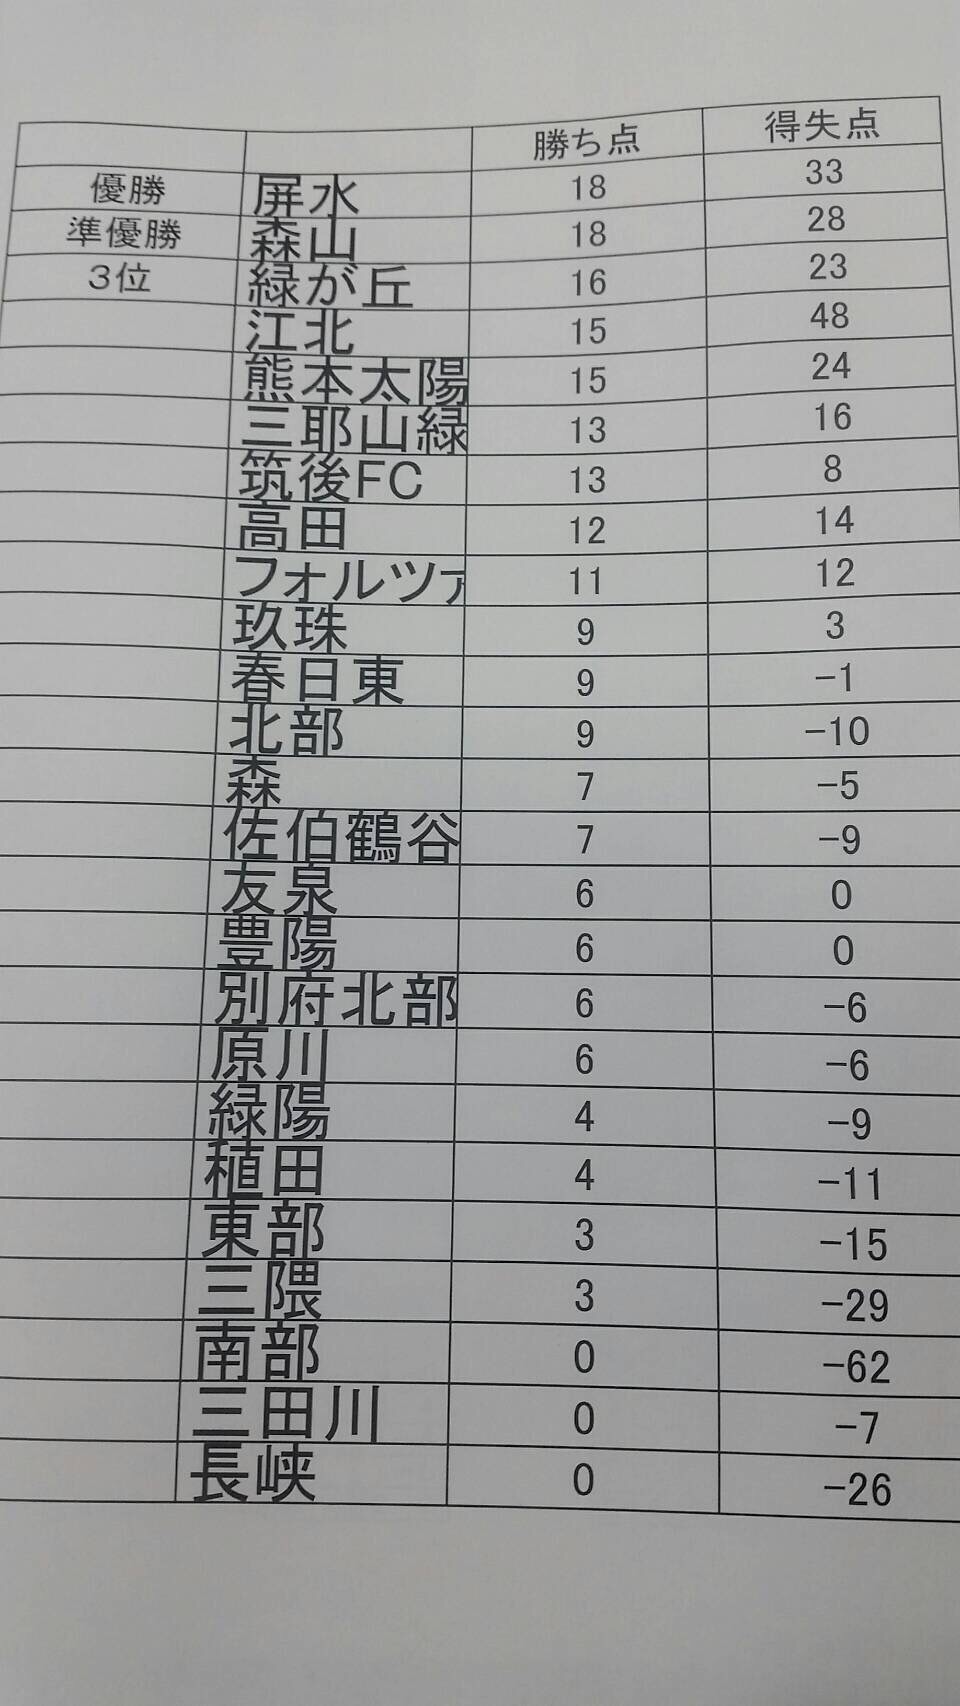 勝ち点 得失点
優勝 屏水 18 33
準優勝 森山 18 28
３位 緑が丘 16 23
江北 15 48
熊本太陽 15 24
三耶山緑 13 16
筑後FC 13 8
高田 12 14
フォルツァ 11 12
玖珠 9 3
春日東 9 -1
北部 9 -10
森 7 -5
佐伯鶴谷 7 -9
友泉 6 0
豊陽 6 0
別府北部 6 -6
原川 6 -6
緑陽 4 -9
稙田 4 -11
東部 3 -15
三隈 3 -29
南部 0 -62
三田川 0 -7
長峡 0 -26